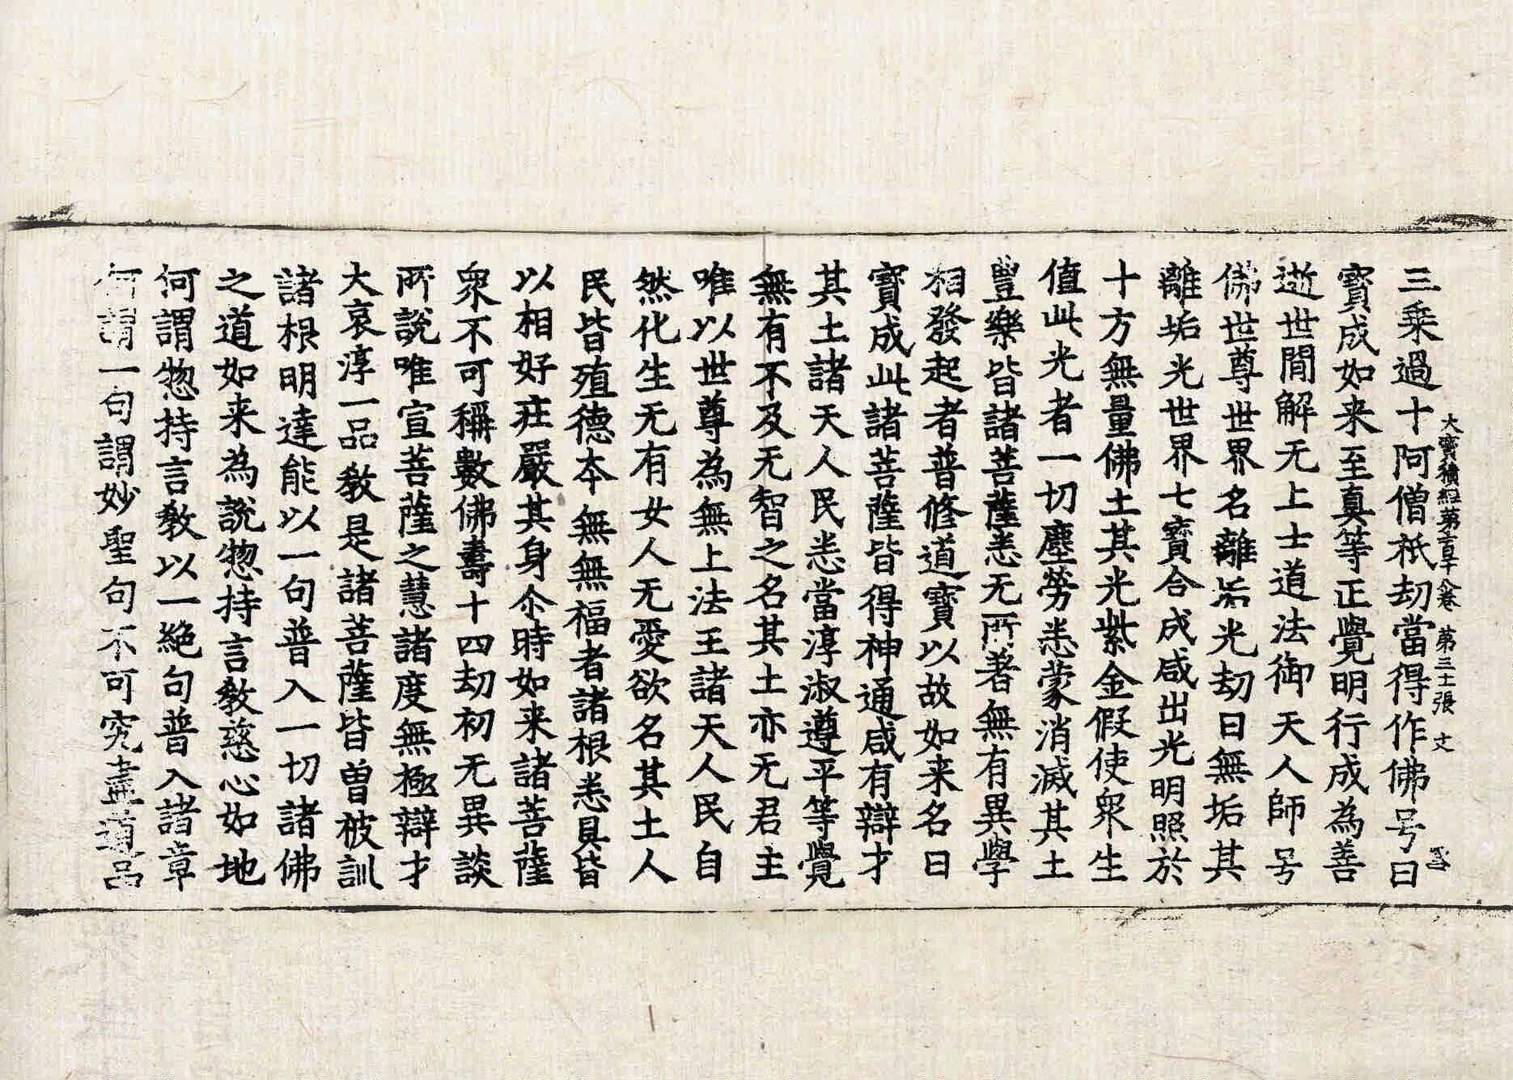 三乗過十阿僧祇劫當得作佛号曰
大寶積經第百十八卷 第三十張 文
寳成如来至真等正覺明行成為善
逝世間解无上士道法御天人師号
佛世尊世界名離垢光劫曰無垢其
離垢光世界七寳合成咸出光明照於
十方無量佛土其光紫金假使衆生
值此光者一切塵勞悉蒙消滅其土
豐樂皆諸菩薩悉无所著無有異學
相發起者普修道寳以故如来名曰
寳成此諸菩薩皆得神通咸有辯才
其土諸天人民悉當淳淑遵平等覺
無有不及无智之名其土亦无君主
唯以世尊為無上法王諸天人民自
然化生无有女人无愛欲名其土人
民皆殖德本無無福者諸根悉具皆
以相好莊嚴其身尒時如来諸菩薩
衆不可稱數佛壽十四劫初无異談
所說唯宣菩薩之慧諸度無極辯才
大哀淳一品教是諸菩薩皆曽被訓
諸根明達能以一句普入一切諸佛
之道如来為說惣持言教慈心如地
何謂惣持言教以一絕句普入諸章
何謂一句謂妙聖句不可究盡道品